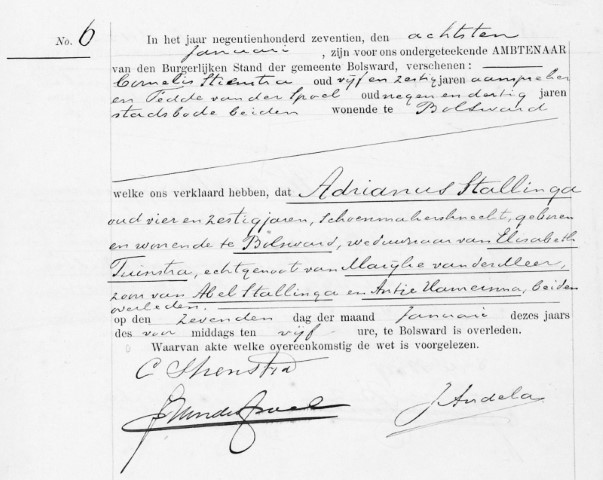 No. 6 In het jaar negentienhonderd zeventien, den achtsten
Januari, zijn voor ons ondergeteekende AMBTENAAR
van den Burgerlijken Stand der gemeente Bolsward, verschenen:
Cornelis Stienstra oud vijf en zestig jaren aanspreker
en Tedde van der Spoel oud negen en dertig jaren
stadsbode beiden wonende te Bolsward
welke ons verklaard hebben, dat Adrianus Stallinga
oud vier en zestig jaren, schoenmakersknecht, geboren
en wonende te Bolsward, weduwnaar van Elisabeth
Tuinstra, echtgenoot van Maijke van der Meer,
zoon van Abel Stallinga en Antje Hamersma, beiden
overleden.
op den zevenden dag der maand Januari dezes jaars
des voor middags ten vijf ure, te Bolsward is overleden.
Waarvan akte welke overeenkomstig de wet is voorgelezen.
C Stienstra
J. Andela